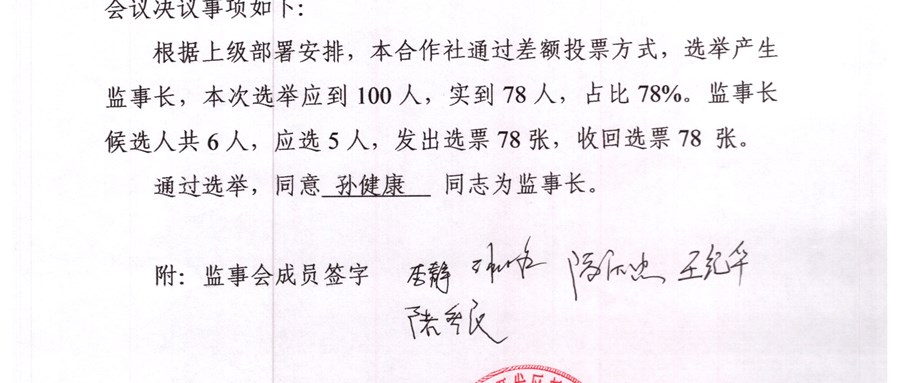 会议决议事项如下：
根据上级部署安排，本合作社通过差额投票方式，选举产生
监事长，本次选举应到100人，实到78人，占比78%。监事长
候选人共6人，应选5人，发出选票78张，收回选票78 张。
通过选举，同意 孙健康 同志为监事长。
附：监事会成员签字 李静 王纪华